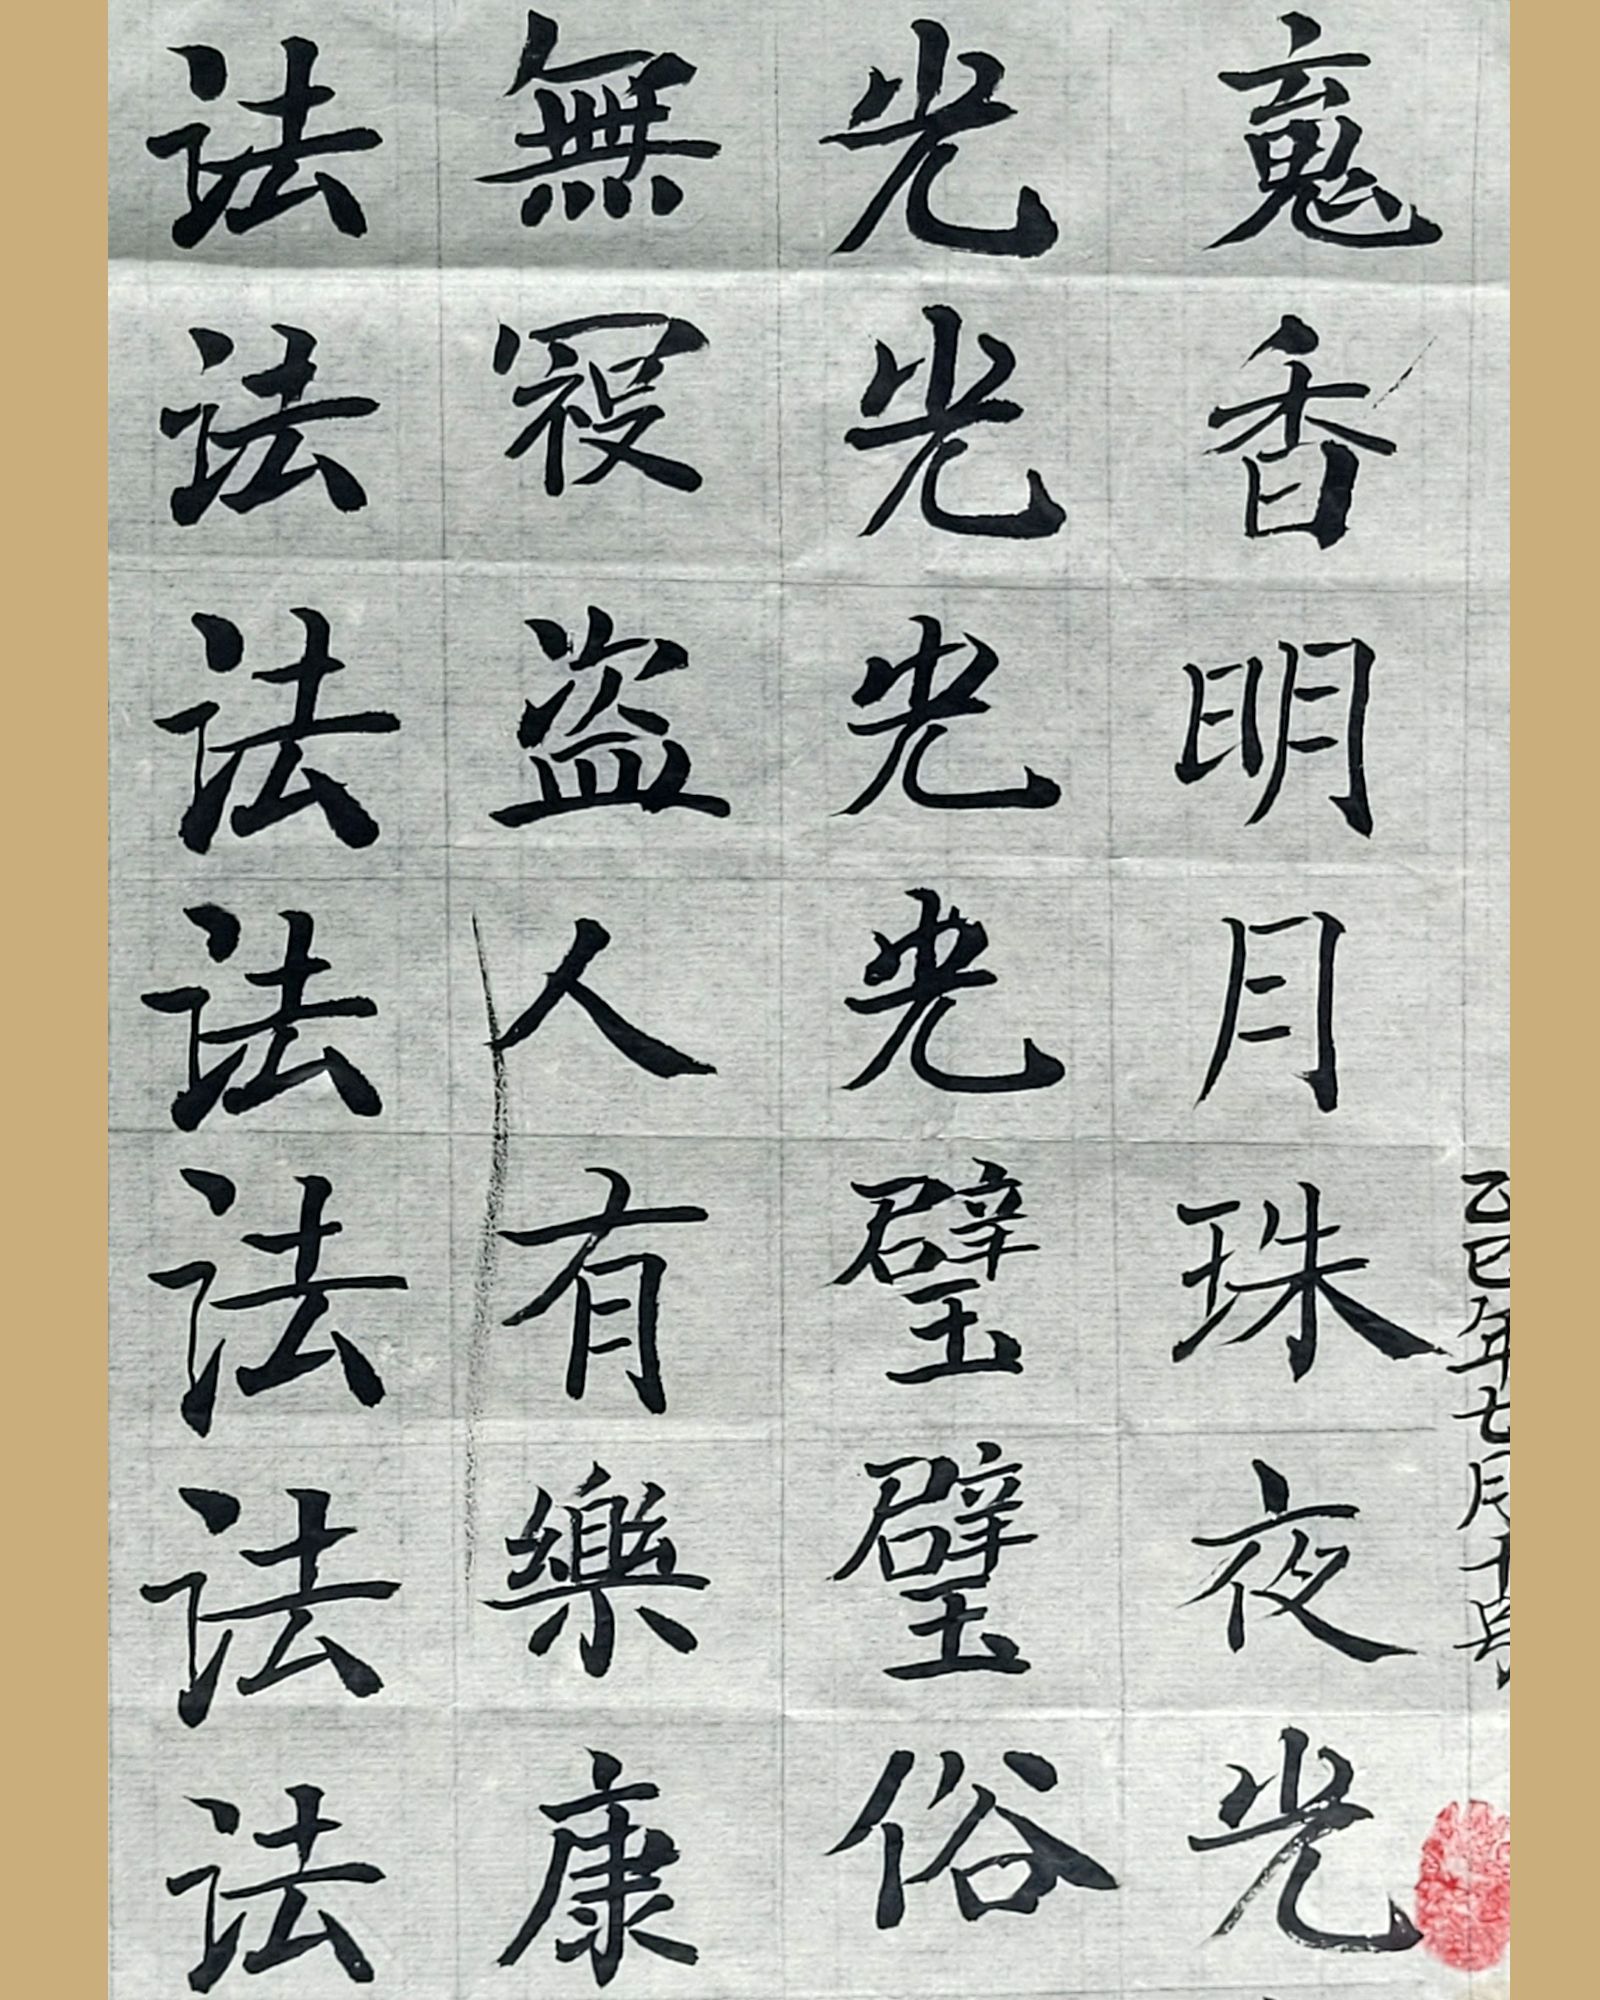 法法法法法法法
無冦盗人有樂康
光光光光璧璧俗
䰟香明月珠夜光
乙巳年七月十